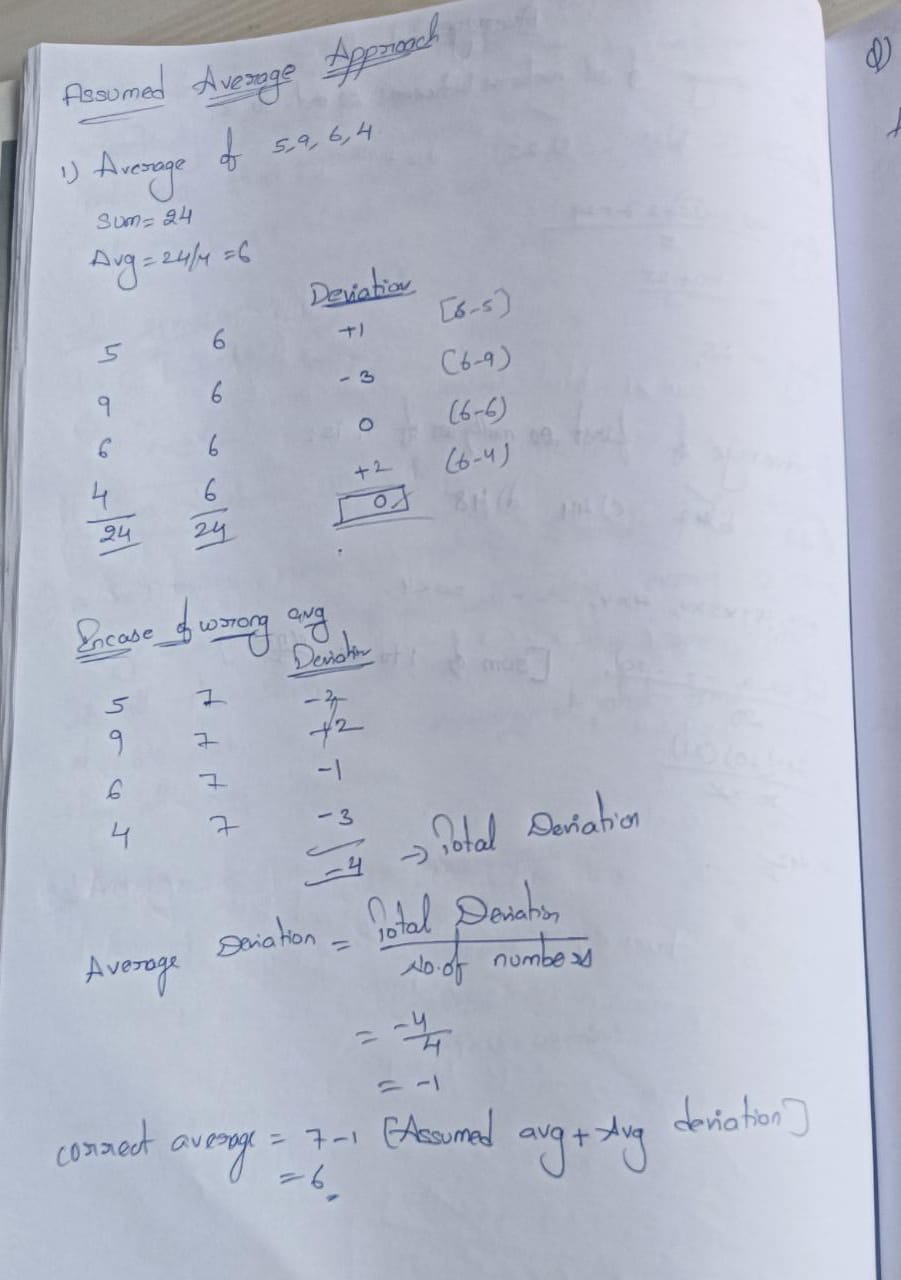 Assumed Average Approach
1) Average of 5,9,6,4
Sum= 24
Avg = 24/4 = 6
Deviation
5 6 +1 [6-5]
9 6 -3 (6-9)
6 6 0 (6-6)
4 6 +2 (6-4)
24 24 0
Incase of wrong avg
Deviation
5 7 -2
9 7 +2
6 7 -1
4 7 -3
-4 → Total Deviation
Average Deviation = Total Deviation
No. of numbers
= -4
4
= -1
correct average = 7-1 [Assumed avg + Avg deviation]
= 6